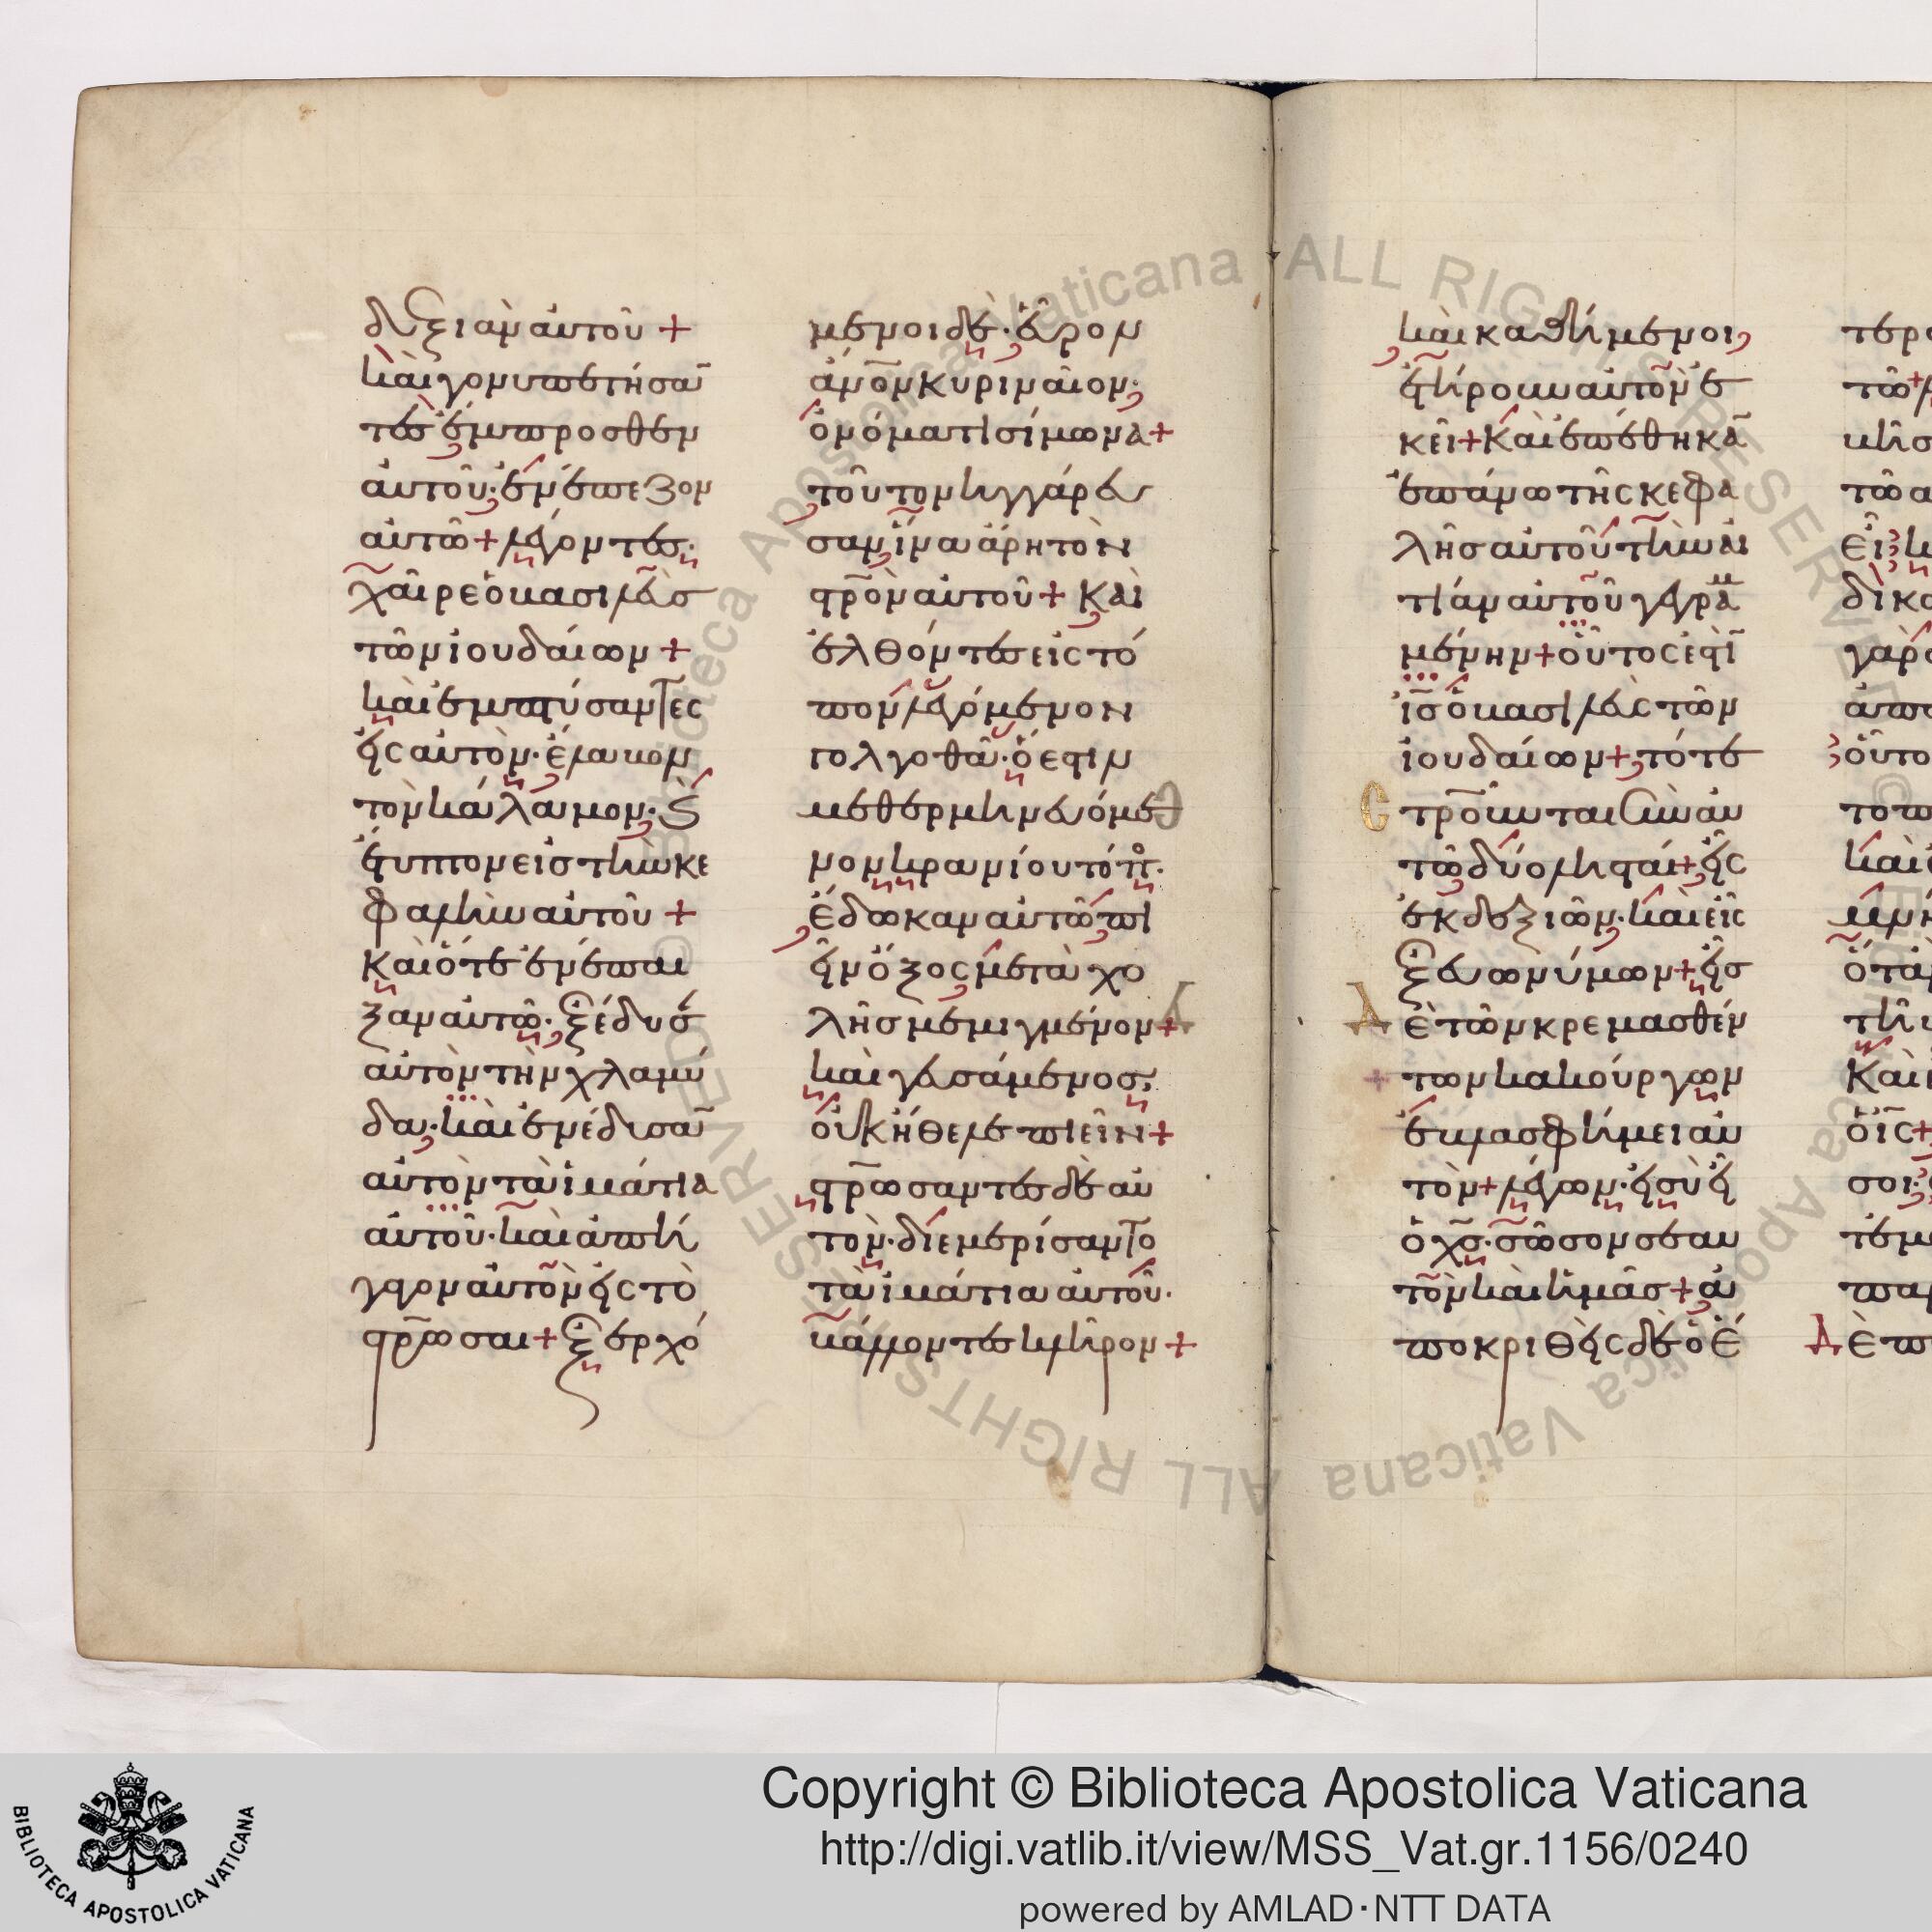 δεξιὰν αὐτοῦ +
καὶ γονυπετήσαν
τες ἔμπροσθεν
αὐτοῦ· ἐνέπεζον
αὐτῶ + λέγοντες·
χαῖρε ὁ βασιλεὺσ
τῶν ἰουδαίων +
καὶ ἐμπτύσαντες
εἰς αὐτὸν· ἔλαβον
τὸν κάλαμον· καὶ
ἔτυπτον εἰσ τὴν κε
φαλὴν αὐτοῦ +
Καὶ ὅτε ἐνέπαι
ξαν αὐτῶ· ἐξέδυσαν
αὐτὸν τὴν χλαμύ
δα· καὶ ἐνέδυσαν
αὐτὸν τὰ ἱμάτια
αὐτοῦ· καὶ ἀπή
γαγον αὐτὸν εἰς τὸ
στρῶσαι + ἐξερχό
μενοι δὲ· εὗρον
ἄνον κυριναῖον·
ὀνόματι σίμωνα +
τοῦτον ἠγγάρευ
σαν ἵνα ἄρη τὸν
στρὸν αὐτοῦ + Καὶ
ἐλθόντες εἰς τό
πον λεγόμενον
γολγοθᾶ· ὅ ἐστιν
μεθερμηνευόμε
νον κρανίου τόπος·
Ἔδωκαν αὐτῶ πι
εῖν ὄξος μετὰ χο
λῆσ μεμιγμένον +
καὶ γευσάμενοσ·
οὐκ ἤθελε πιεῖν +
στρώσαντες δὲ αὐ
τὸν· διεμερίσαντο
τὰ ἱμάτια αὐτοῦ·
βάλλοντες κλῆρον +
καὶ καθήμενοι
ἐτήρουν αὐτὸν ἐ
κεῖ + Καὶ ἐπέθηκαν
ἐπάνω τῆς κεφα
λῆσ αὐτοῦ τὴν αἰ
τίαν αὐτοῦ γεγραμ
μένην + οὗτος ἐστὶν
ἰσ ὁ βασιλεὺς τῶν
ἰουδαίων + τότε
στροῦνται σὺν αὐ
τῶ δύο λησταί + εἷς
ἐκ δεξιῶν· καὶ εἷς
ἐξ εὐωνύμων + εἷσ
Δὲ τῶν κρεμασθέν
των κακούργων
ἐβλασφήμει αὐ
τὸν + λέγων· εἰ σὺ εἶ
ὁ χσ· σῶσον σεαυ
τὸν καὶ ἡμᾶσ + ἀ
ποκριθεὶς δὲ ὁ ἕ
Copyright © Biblioteca Apostolica Vaticana
http://digi.vatlib.it/view/MSS_Vat.gr.1156/0240
powered by AMLAD·NTT DATA
BIBLIOTECA APOSTOLICA VATICANA